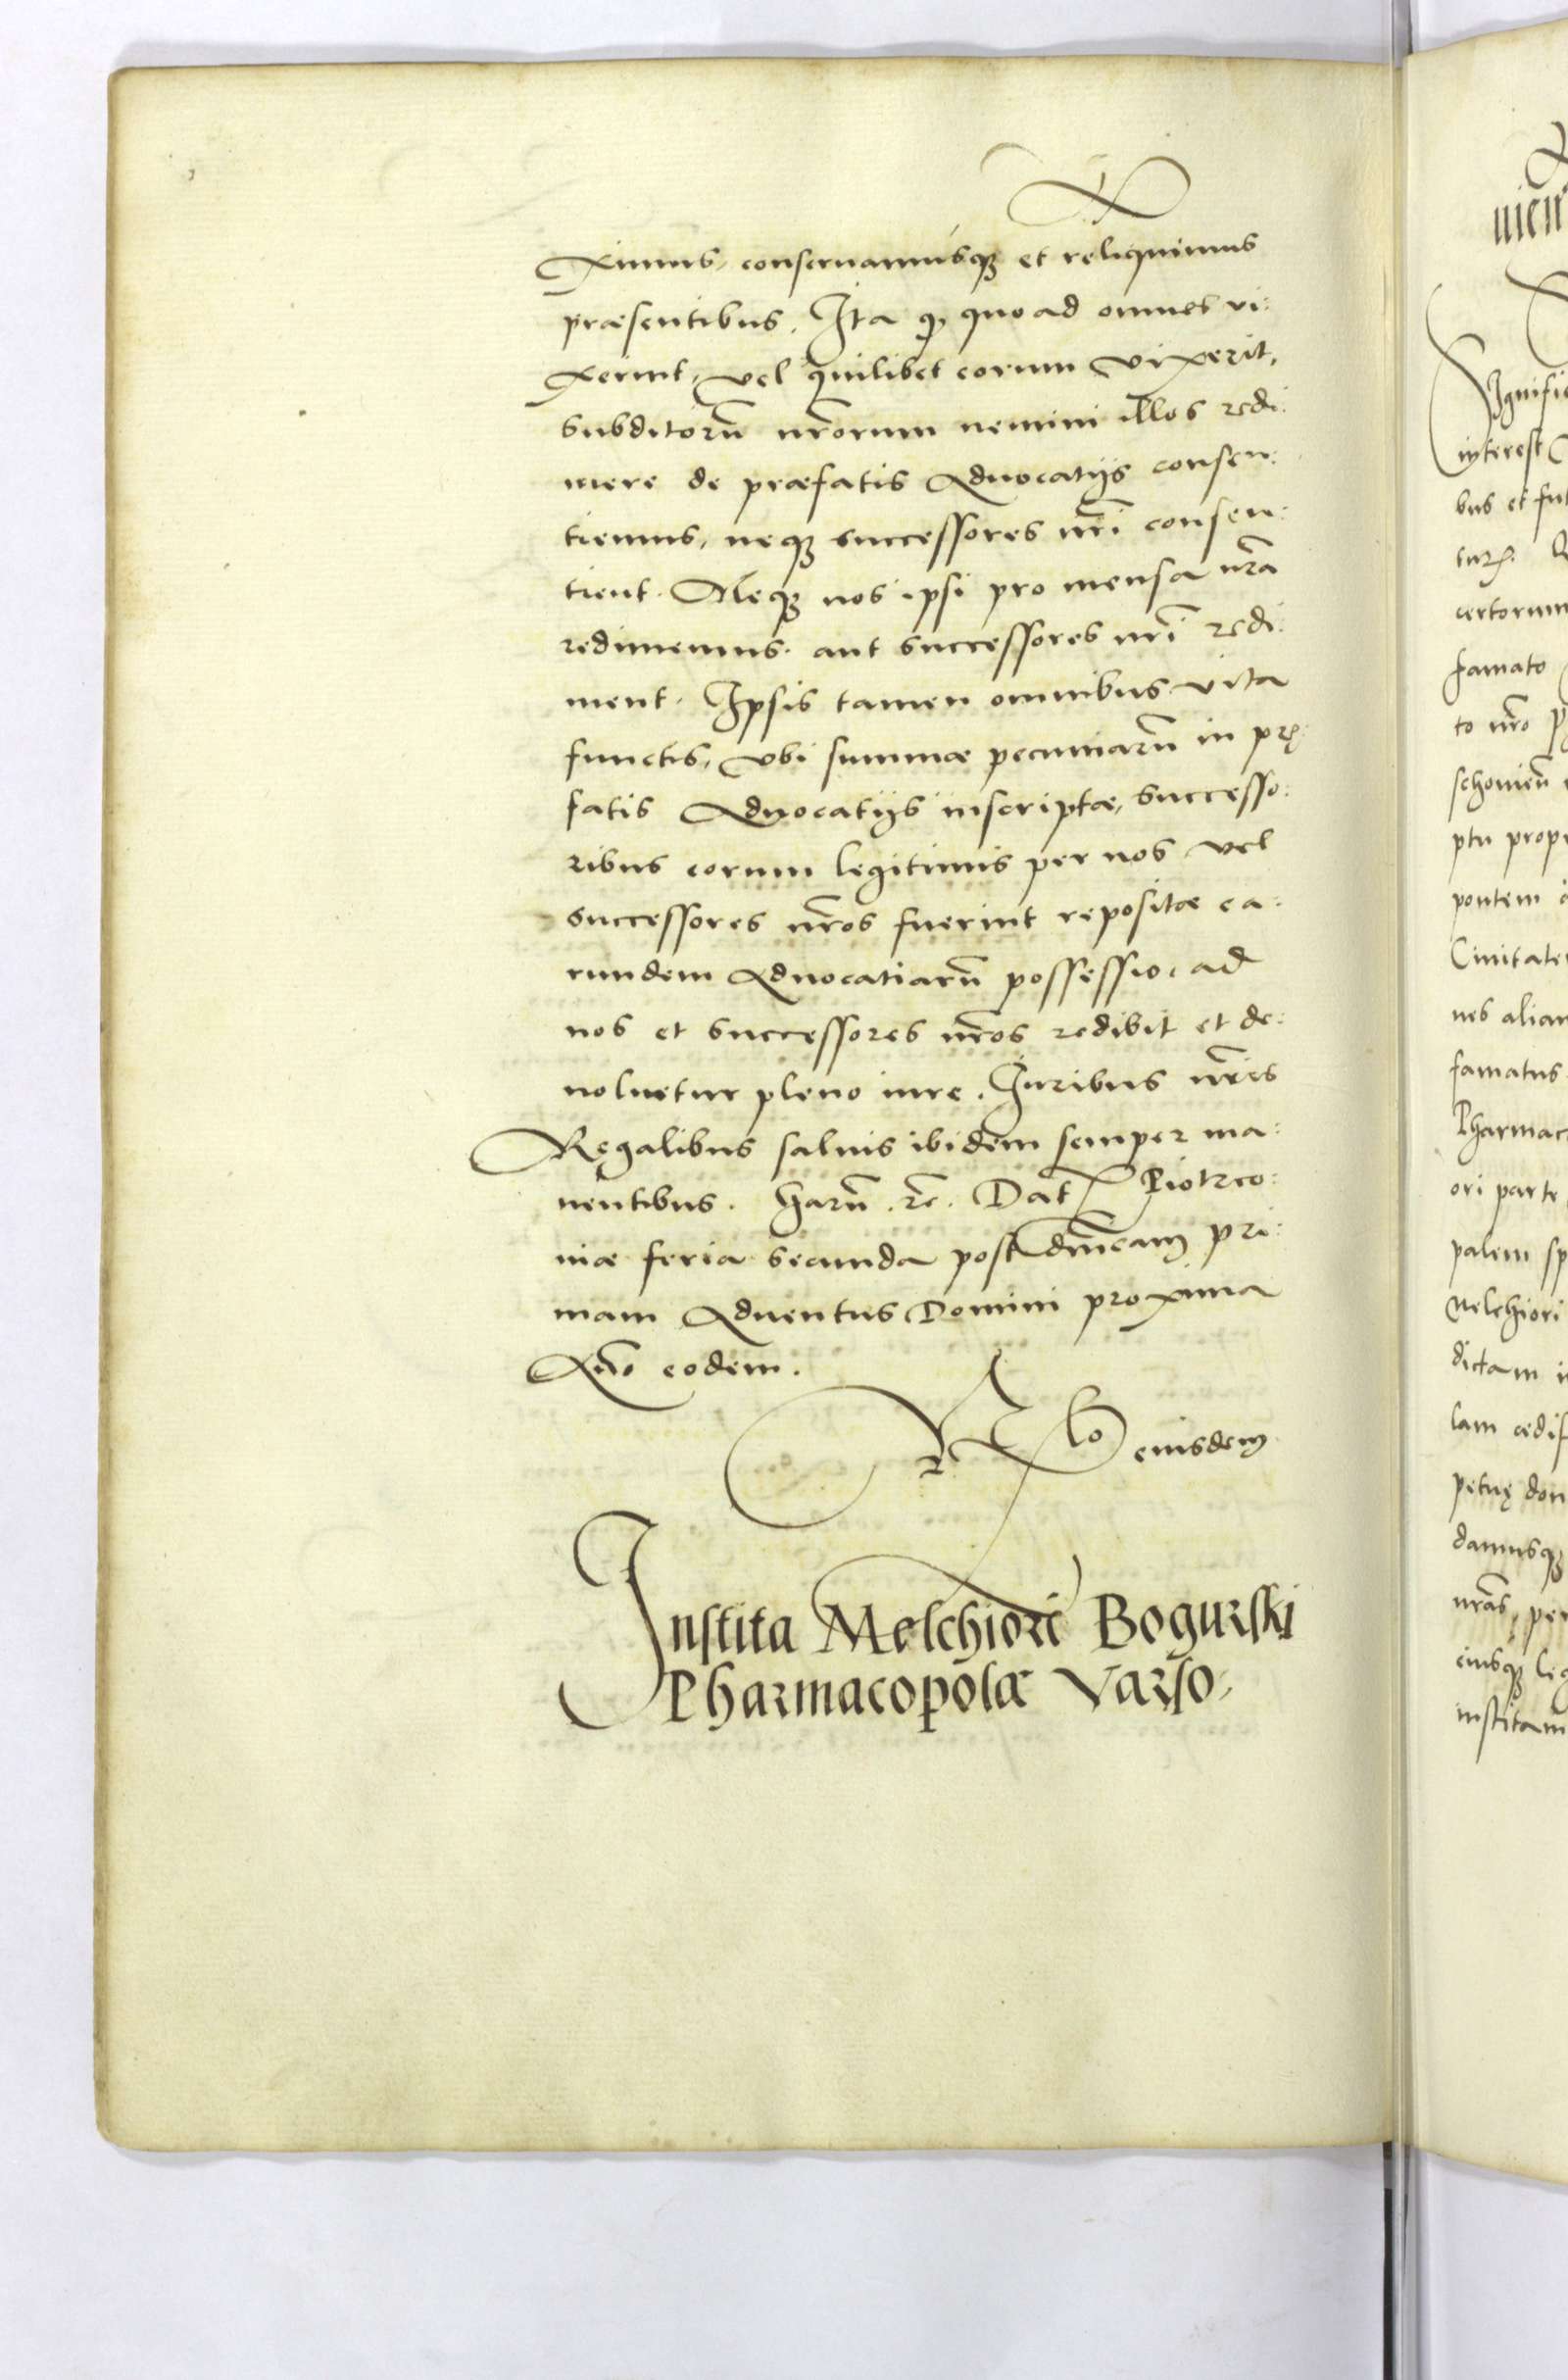 ximus, conseruamusq3 et reliquimus
præsentibus. Ita q, quoad omnes vi:
xerint, vel quilibet eorum vixerit,
subditorū nr̄orum nemini illos redi:
mere de præfatis Aduocatijs consen:
tiemus, neq3 successores nr̄i consen:
tient. Neq3 nos ipsi pro mensa nr̄a
redimemus. aut successores nr̄i redi:
ment. Ipsis tamen omnibus vita
functis, vbi summæ pecuniarū in præ:
fatis Aduocatijs inscriptæ, successo:
ribus eorum legitimis per nos vel
successores nr̄os fuerint repositæ ea:
rundem Aduocatiarū possessio, ad
nos et successores nr̄os redibit et de:
uoluetur pleno iure. Iuribus nr̄is
Regalibus saluis ibidem semper ma:
nentibus. Harū. rc̄. Dat Piotrco:
uiæ feria secunda post dn̄icam pri:
mam Aduentus Domini proxima
Anō eodem.
Rlō eiusdem
Instita Melchiori Bogurski
Pharmacopolæ Varso,
nien
Signific
interest
bus et fut
tur
certorum
famato
to nr̄o
schouien̄
ptu propr
pontem
Ciuitate
nes aliam
famatus
Pharmac
ori parte
palem sp
Melchiori
dictam i
lam ædif
petuę don
damusq3
nr̄as, per
eiusq3 leg
institam